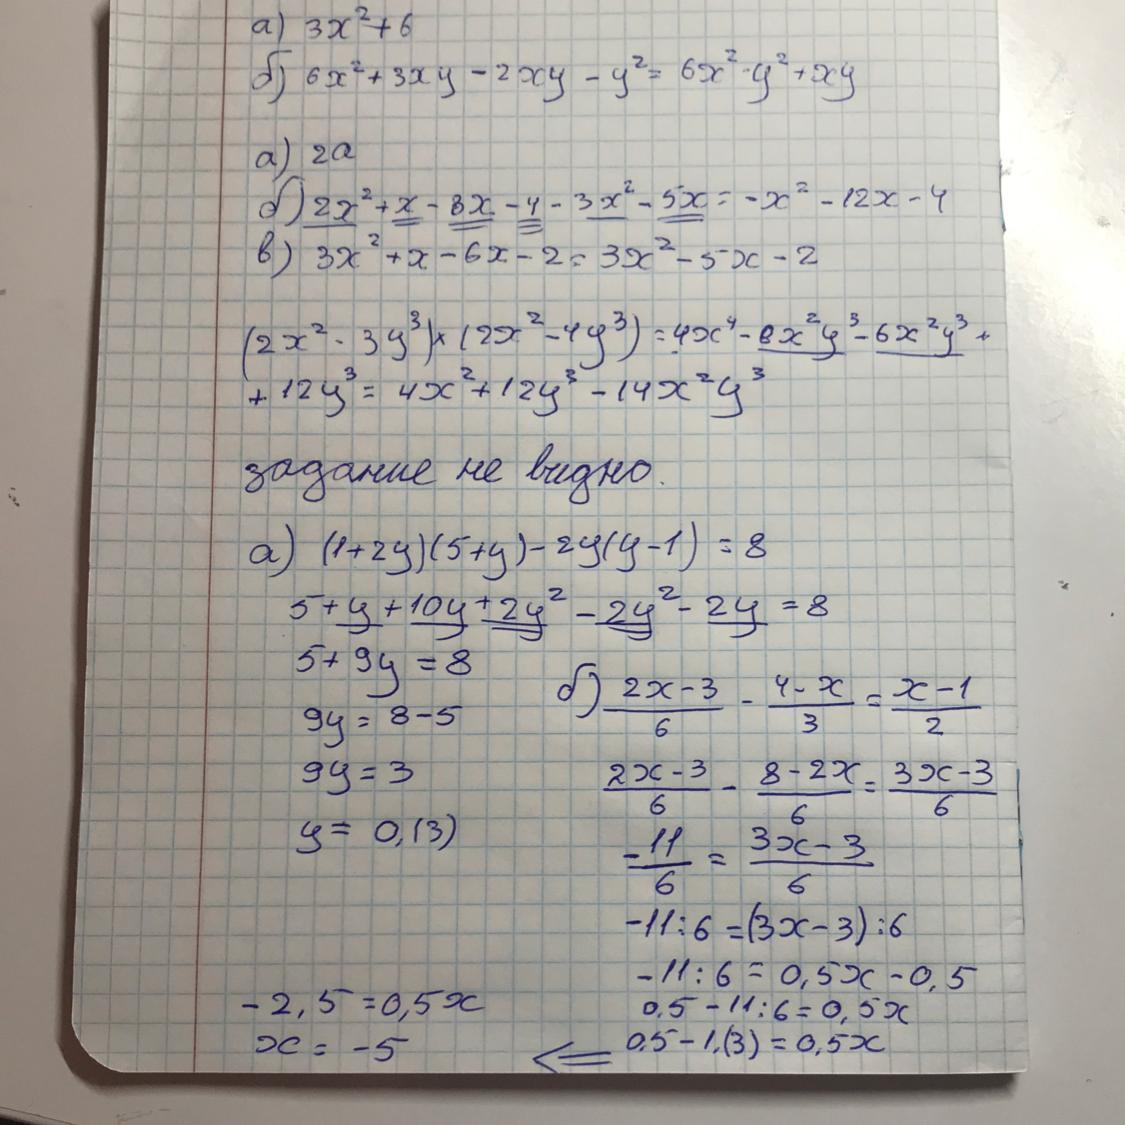 а) 3x²+6
б) 6x²+3xy-2xy-y²= 6x²-y²+xy
а) 2a
б) 2x²+x-8x-4-3x²-5x=-x²-12x-4
в) 3x²+x-6x-2=3x²-5x-2
(2x²-3y³)×(2x²-4y³)=4x⁴-8x²y³-6x²y³+
+12y³= 4x²+12y³-14x²y³
задание не видно.
а) (1+2y)(5+y)-2y(y-1)=8
5+y+10y+2y²-2y²-2y=8
5+9y=8
9y=8-5
9y=3
y= 0,(3)
б) (2x-3)/6 - (4-x)/3 = (x-1)/2
(2x-3)/6 - (8-2x)/6 = (3x-3)/6
-11/6 = (3x-3)/6
-11:6=(3x-3):6
-11:6=0,5x-0,5
0,5-11:6=0,5x
0,5-1,(3)=0,5x
-2,5=0,5x
x=-5